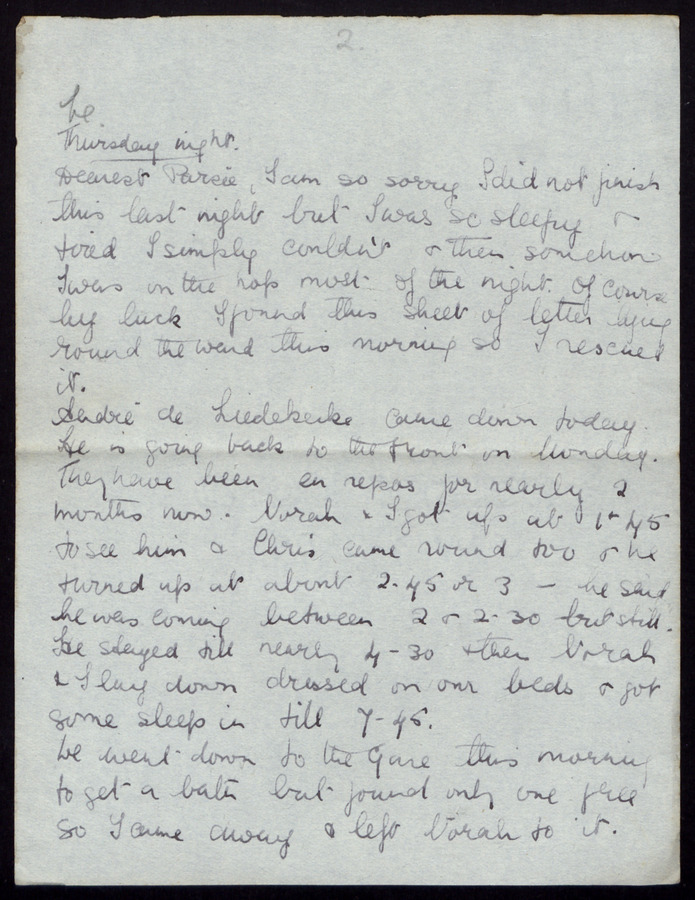 2.
he
Thursday night.
Dearest Parsie, I am so sorry I did not finish
this last night but I was so sleepy &
tired I simply couldn't & then somehow
I was on the hop most of the night. Of course
by luck I found this sheet of letter lying
round the ward this morning so I rescued
it.
André de Liedekerke came down today.
He is going back to the front on Monday.
They have been en repos for nearly 2
months now. Norah & I got up at 1-45
to see him & Chris came round too & he
turned up at about 2-45 or 3 — he said
he was coming between 2 & 2-30 but still!
He stayed till nearly 4-30 & then Norah
& I lay down dressed on our beds & got
some sleep in till 7-45.
We went down to the Gare this morning
to get a bath but found only one free
so I came away & left Norah to it.